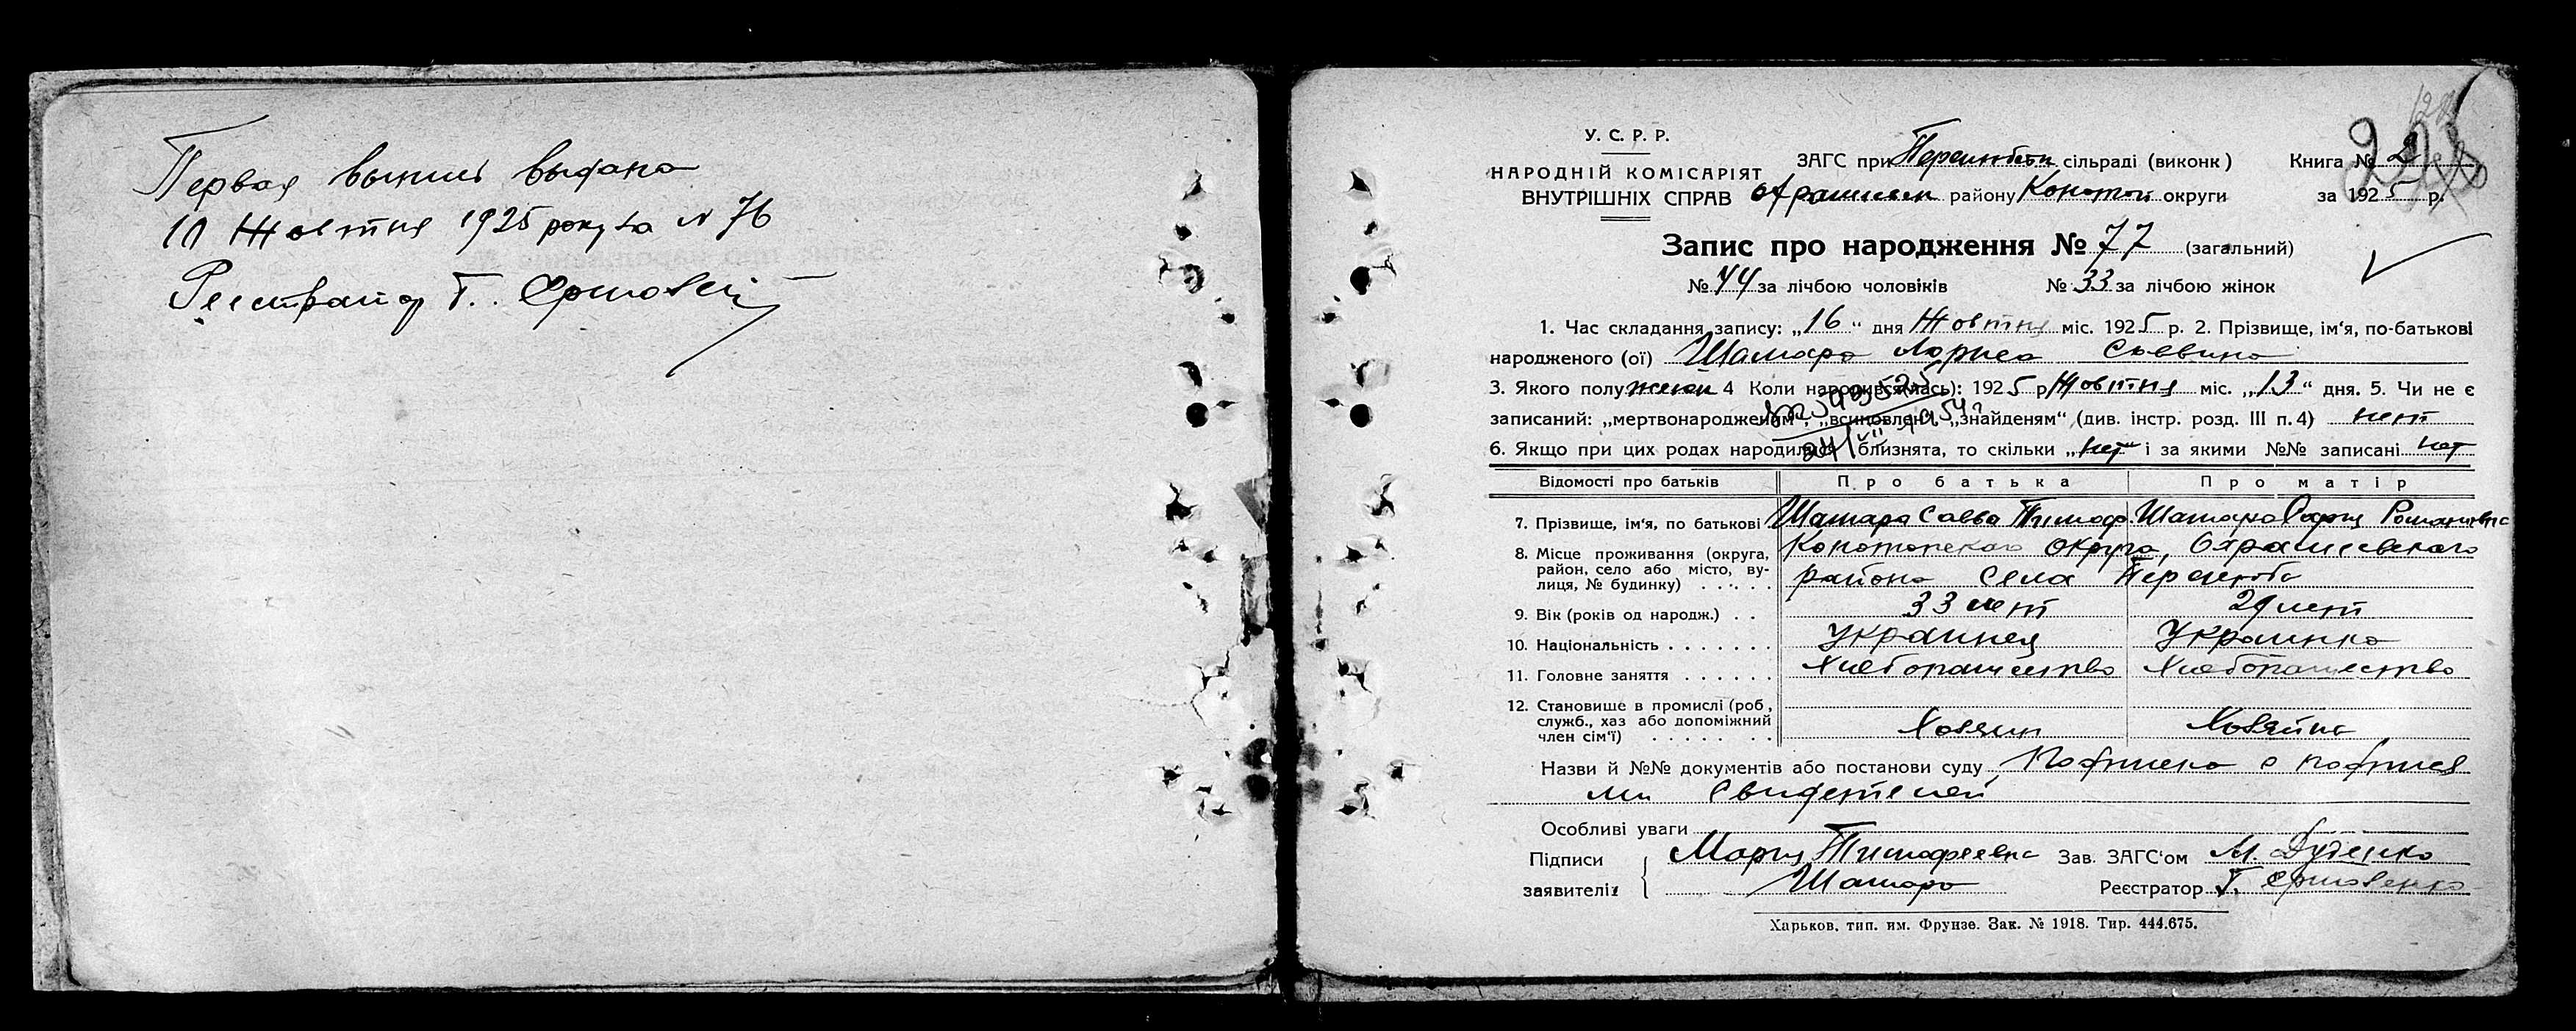 Первая выпись выдана
10 Жовтня 1925 року за № 76
Реєстратор Т. Ермозен
У. С. Р. Р.
НАРОДНІЙ КОМІСАРІЯТ
ВНУТРІШНІХ СПРАВ
ЗАГС при сільраді (виконк )
району Конотоп округи
Книга № 2
за 1925 р.
Запис про народження № 77 (загальний)
№ 44 за лічбою чоловіків № 33 за лічбою жінок
1. Час складання запису: „16“ дня Жовтня міс. 1925 р. 2. Прізвище, ім‘я, по-батькові
народженого (ої) Шамара Лариса Саввина
3. Якого полу женск 4 Коли народився(лась): 1925 р Жовтня міс. „13“ дня. 5. Чи не є
записаний: „мертвонародженим“, „всиновлен“, „знайденям“ (див. інстр. розд. III п. 4) нет
6. Якщо при цих родах народились близнята, то скільки „нет“ і за якими №№ записані нет
Відомості про батьків Про батька Про матір
7. Прізвище, ім‘я, по батькові Шамара Савва Тимоф. Шамара Романовна
8. Місце проживання (округа, район, село або місто, вулиця, № будинку) Конотопского округа,
района села
9. Вік (років од народж.) 33 лет 29 лет
10. Національність Украинец Украинка
11. Головне заняття Хлебопашество Хлебопашество
12. Становище в промислі (роб, служб., хаз або допоміжний член сім‘ї) Хозяин Хозяйка
Назви й №№ документів або постанови суду Подписка с подпися
ми Свидетелей
Особливі уваги
Підписи заявителів { Мария Тимофеевна
Шамара
Зав. ЗАГС‘ом М. Дуденко
Реєстратор Т. Ермозенко
Харьков, тип. им. Фрунзе. Зак. № 1918. Тир. 444.675.